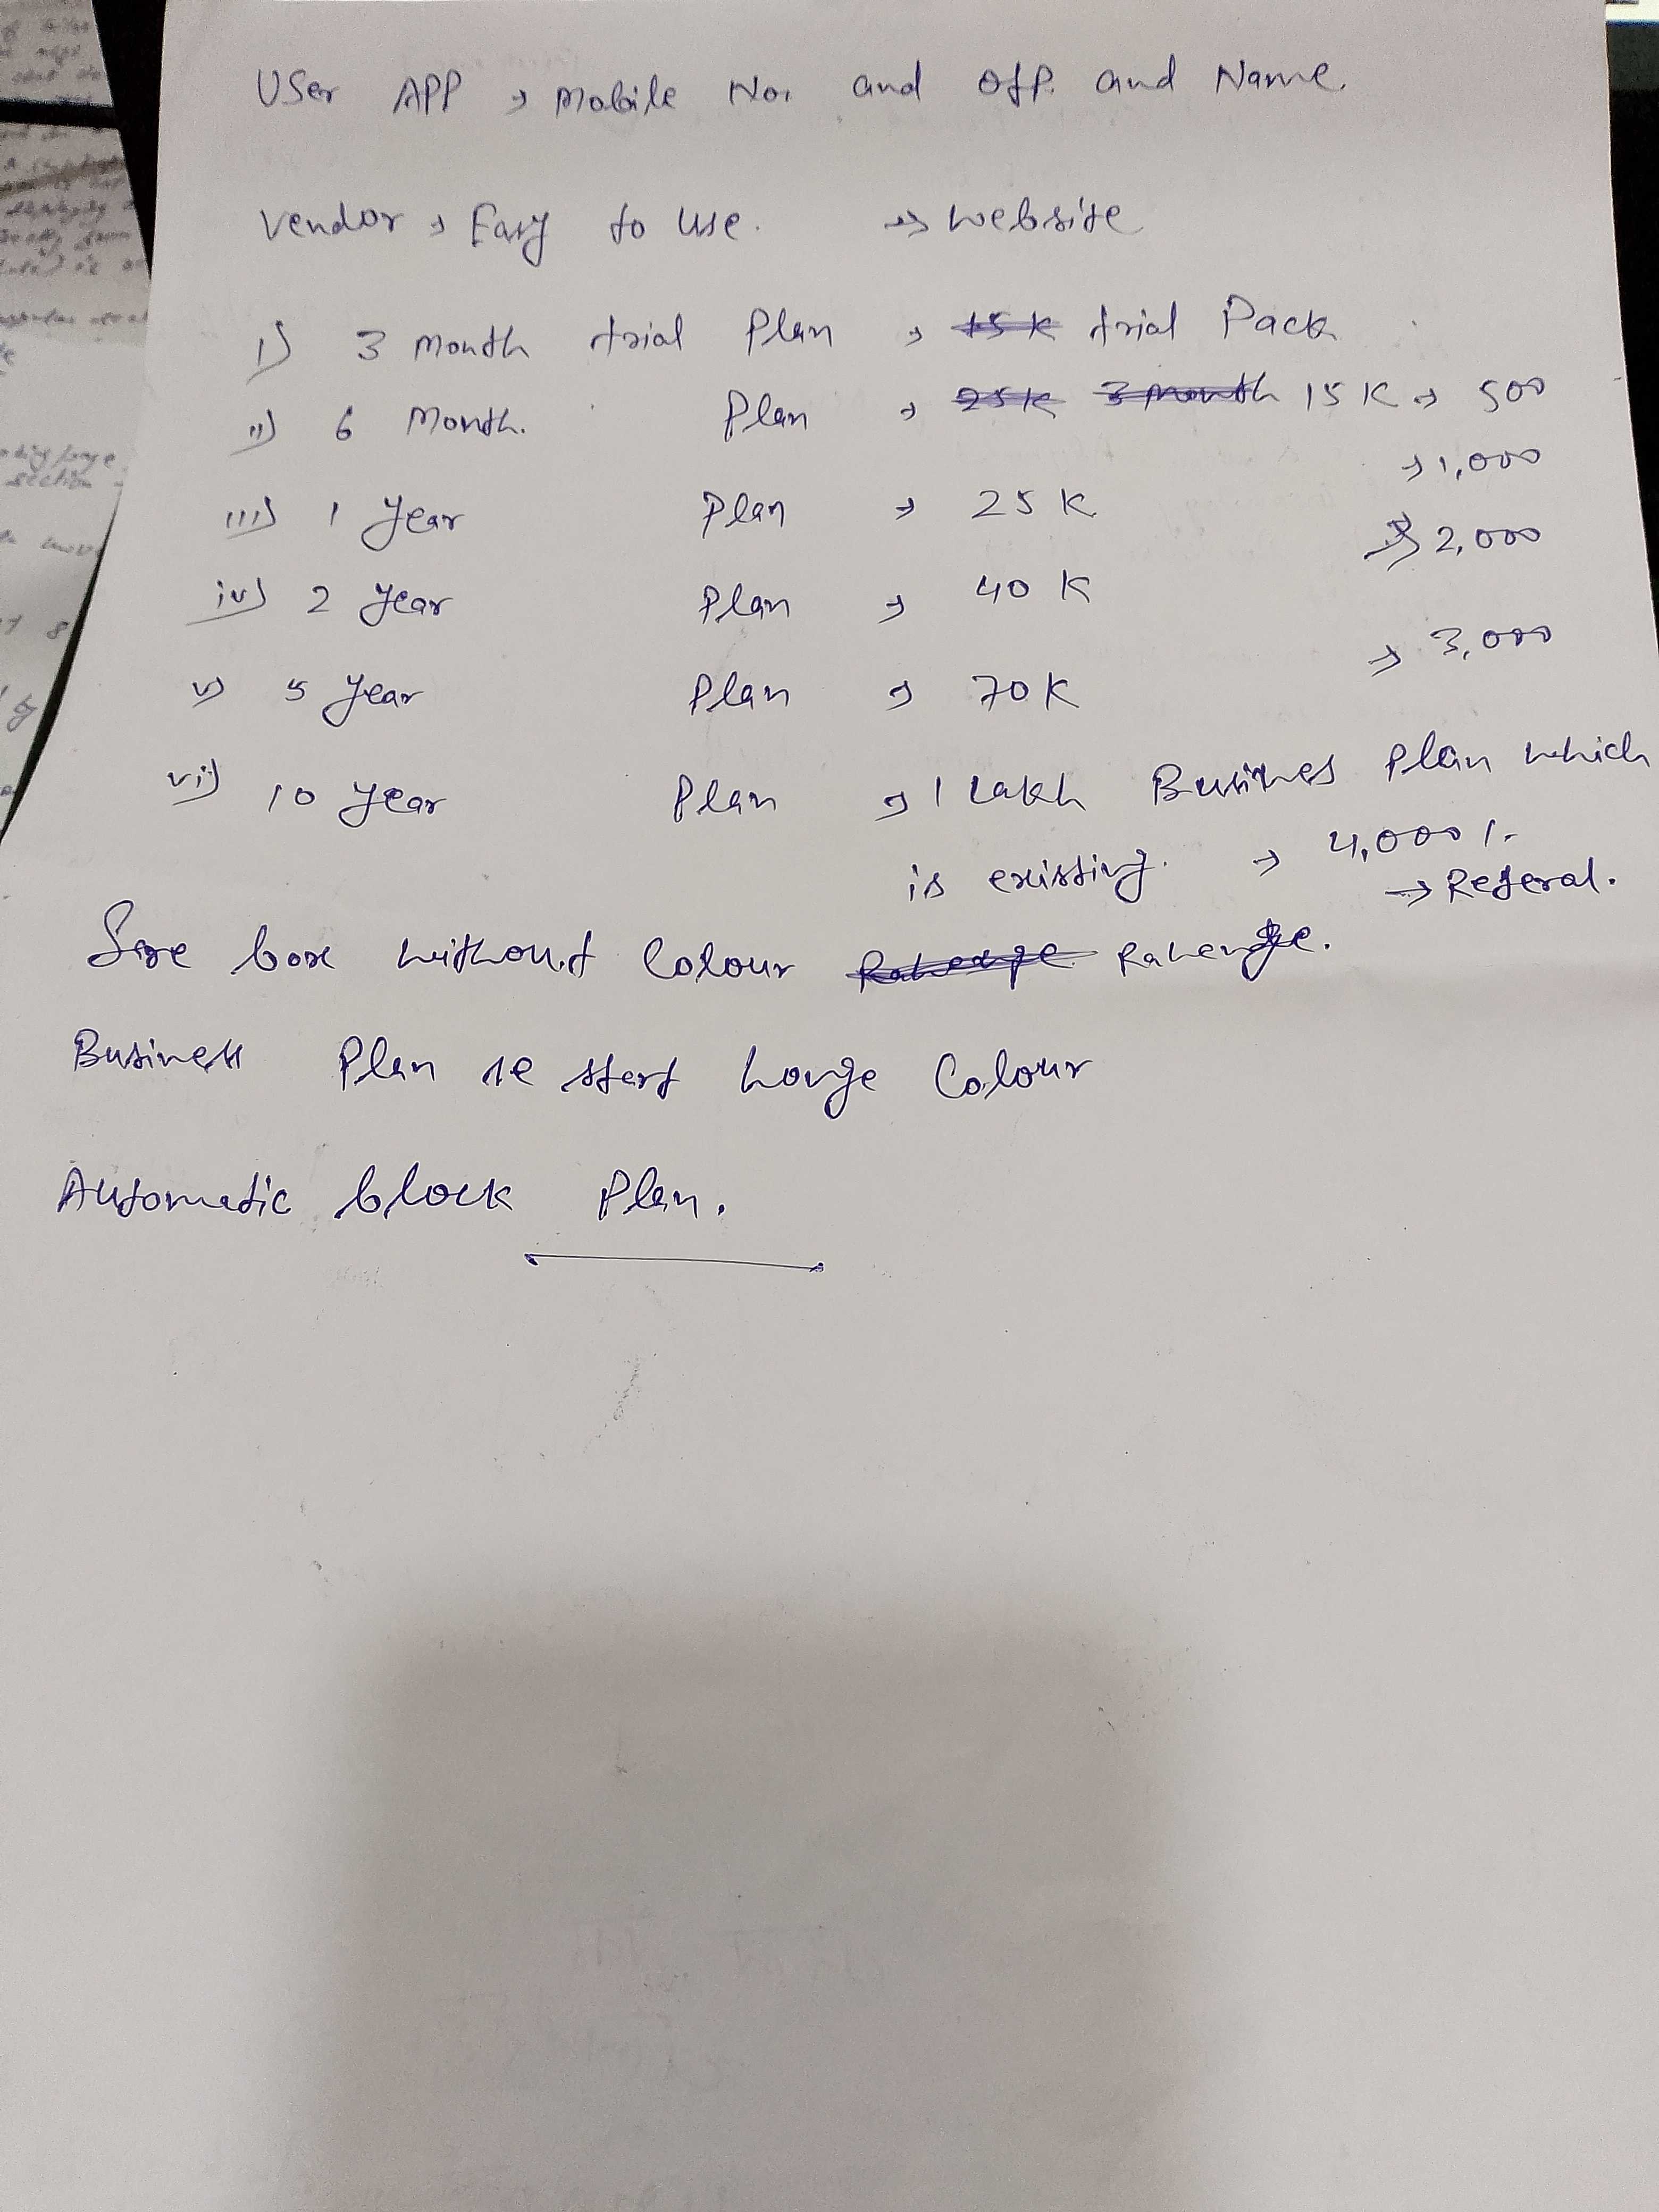 User APP → Mobile No. and OTP. and Name.
Vendor → Easy to use. → website
i) 3 Month trial Plan → 15K trial Pack
ii) 6 Month. Plan → 25K 3 Month 15K → 500
→ 1,000
iii) 1 Year Plan → 25K
→ 2,000
iv) 2 Year Plan → 40K
→ 3,000
v) 5 Year Plan → 70K
vi) 10 Year Plan → 1 Lakh Business Plan which
is existing. → 4,000/-
→ Referal.
box without Colour
Business Plan se start Colour
Automatic block Plan.